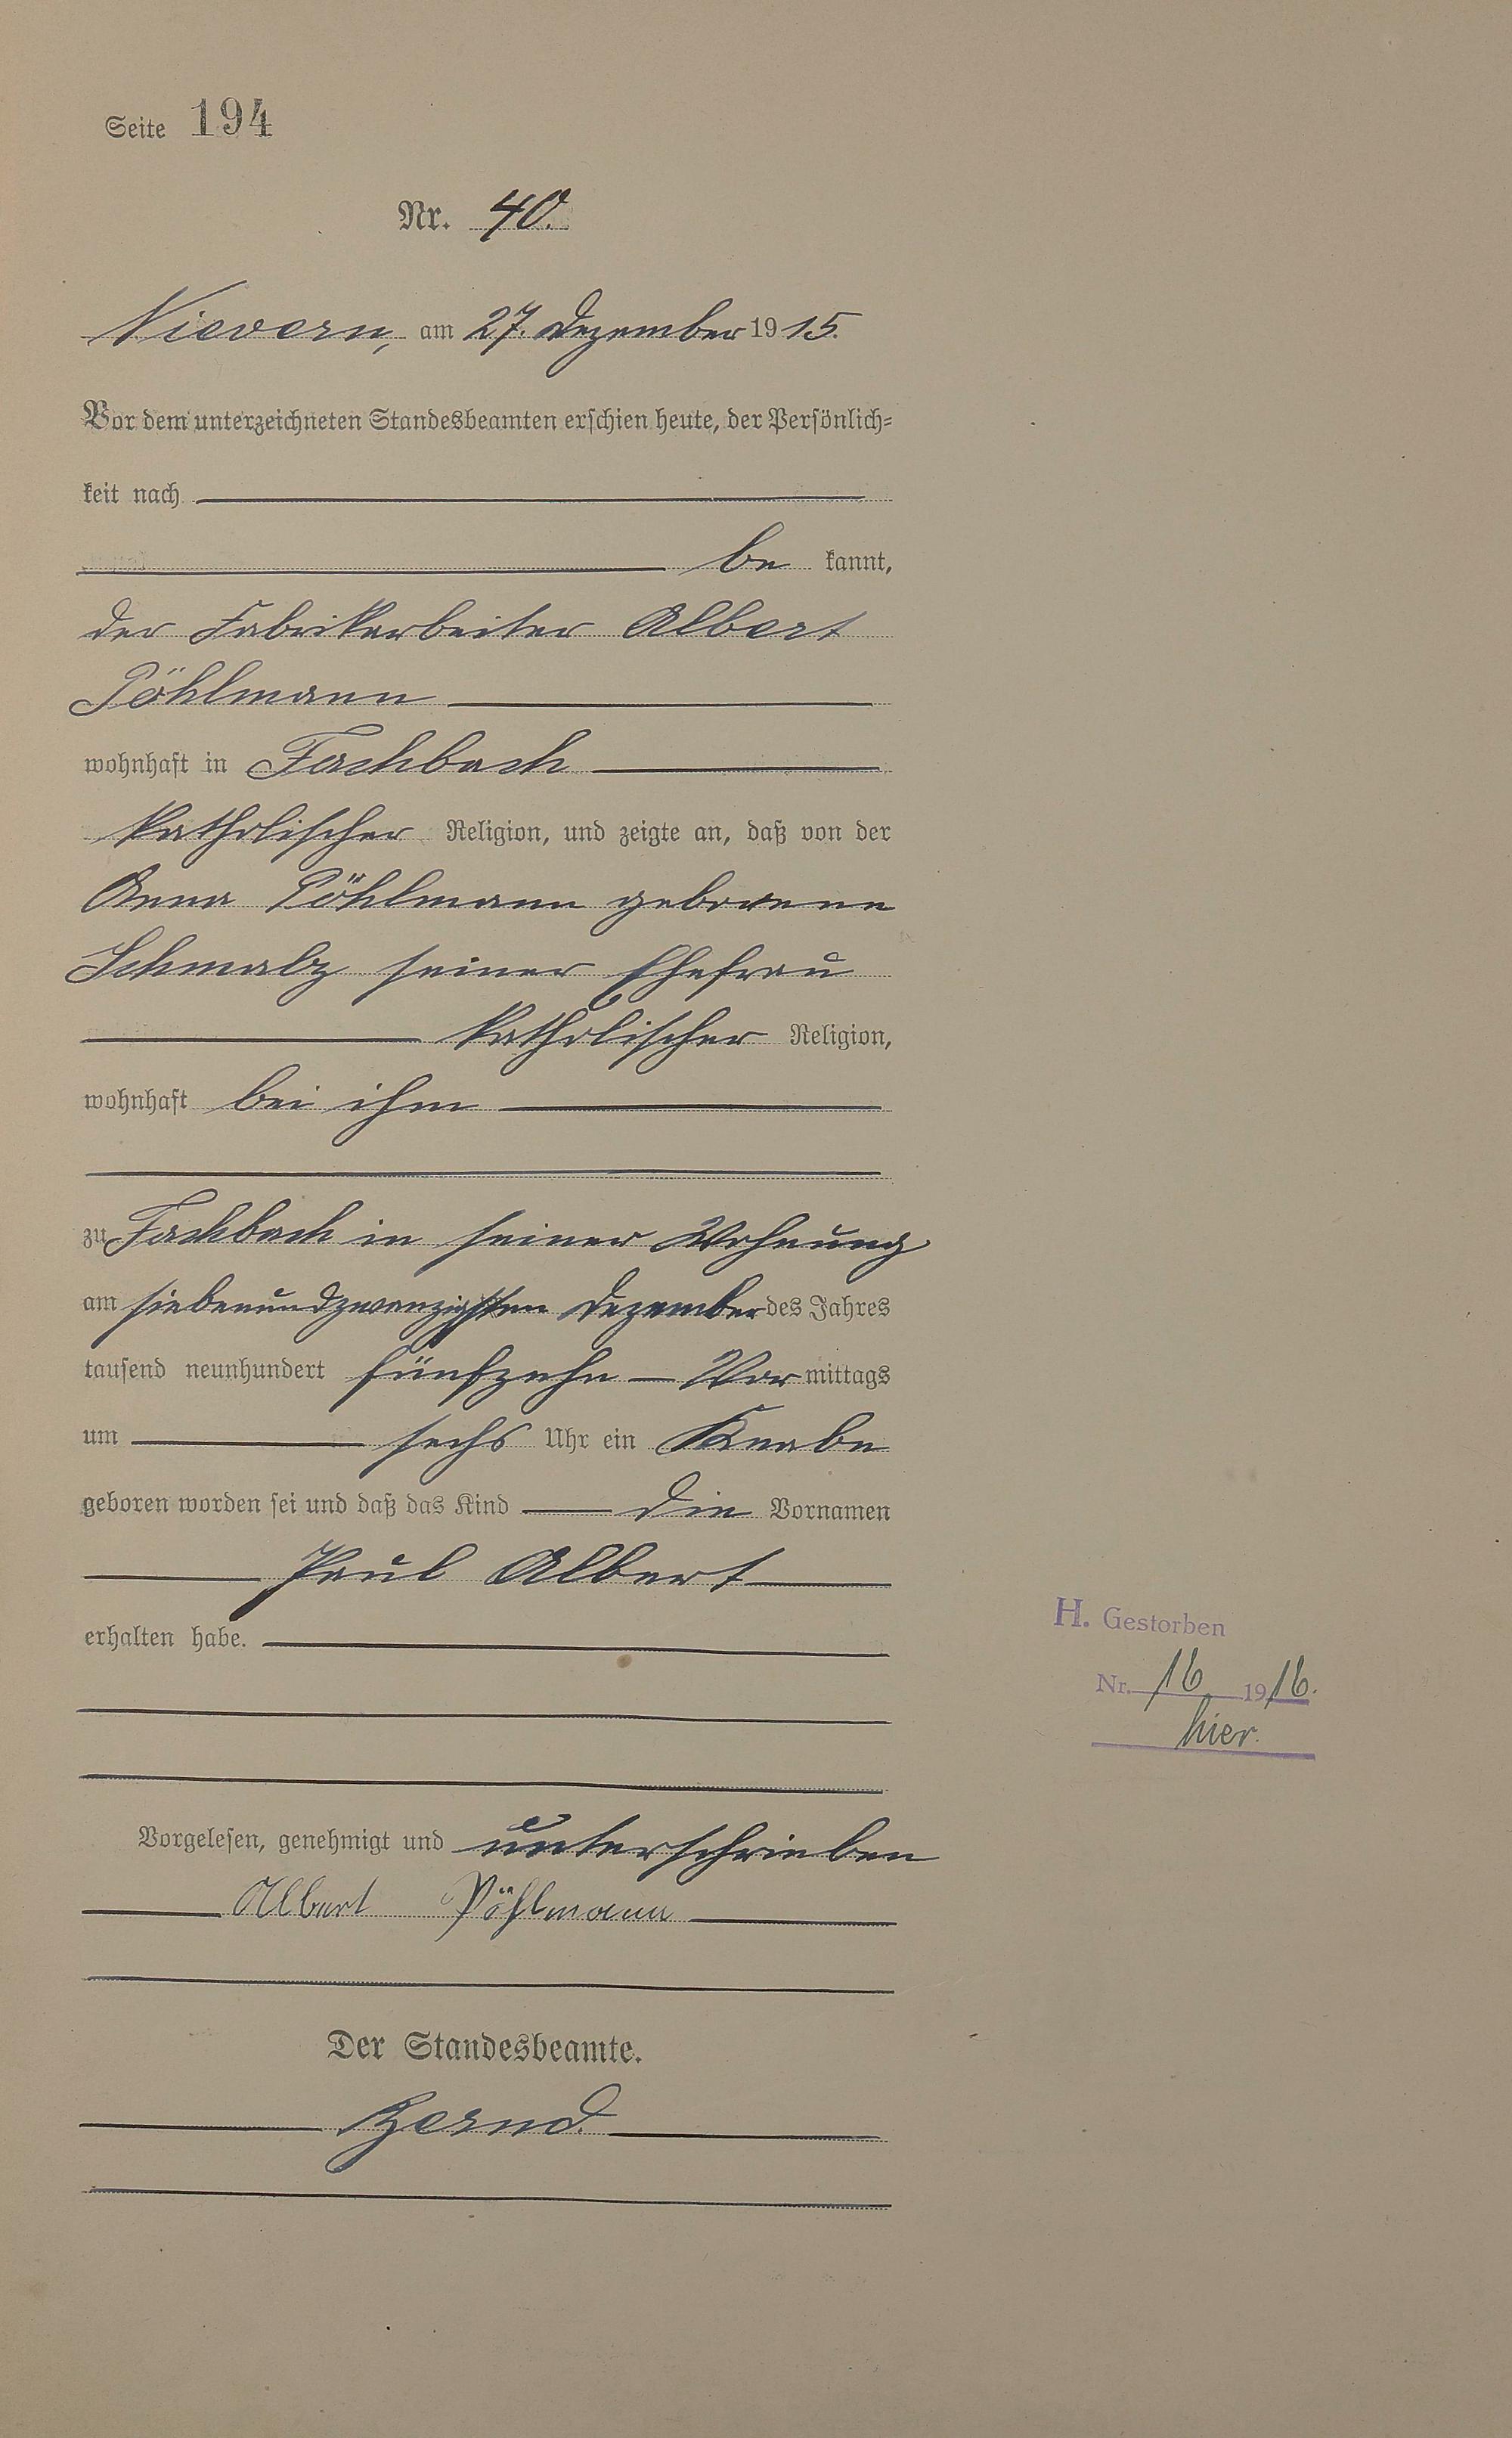 Seite 194
Nr. 40.
Nievern, am 27. Dezember 1915.
Vor dem unterzeichneten Standesbeamten erschien heute, der Persönlich-
keit nach
be kannt,
der Fabrikarbeiter Albert
Pöhlmann
wohnhaft in Fachbach
katholischer Religion, und zeigte an, daß von der
Anna Pöhlmann geborene
Schmalz seiner Ehefrau
katholischer Religion,
wohnhaft bei ihm
zu Fachbach in seiner Wohnung
am siebenundzwanzigsten Dezember des Jahres
tausend neunhundert fünfzehn Vor mittags
um sechs Uhr ein Knabe
geboren worden sei und daß das Kind die Vornamen
Paul Albert
erhalten habe.
H. Gestorben
Nr. 16 1916.
hier.
Vorgelesen, genehmigt und unterschrieben
Albert Pöhlmann
Der Standesbeamte.